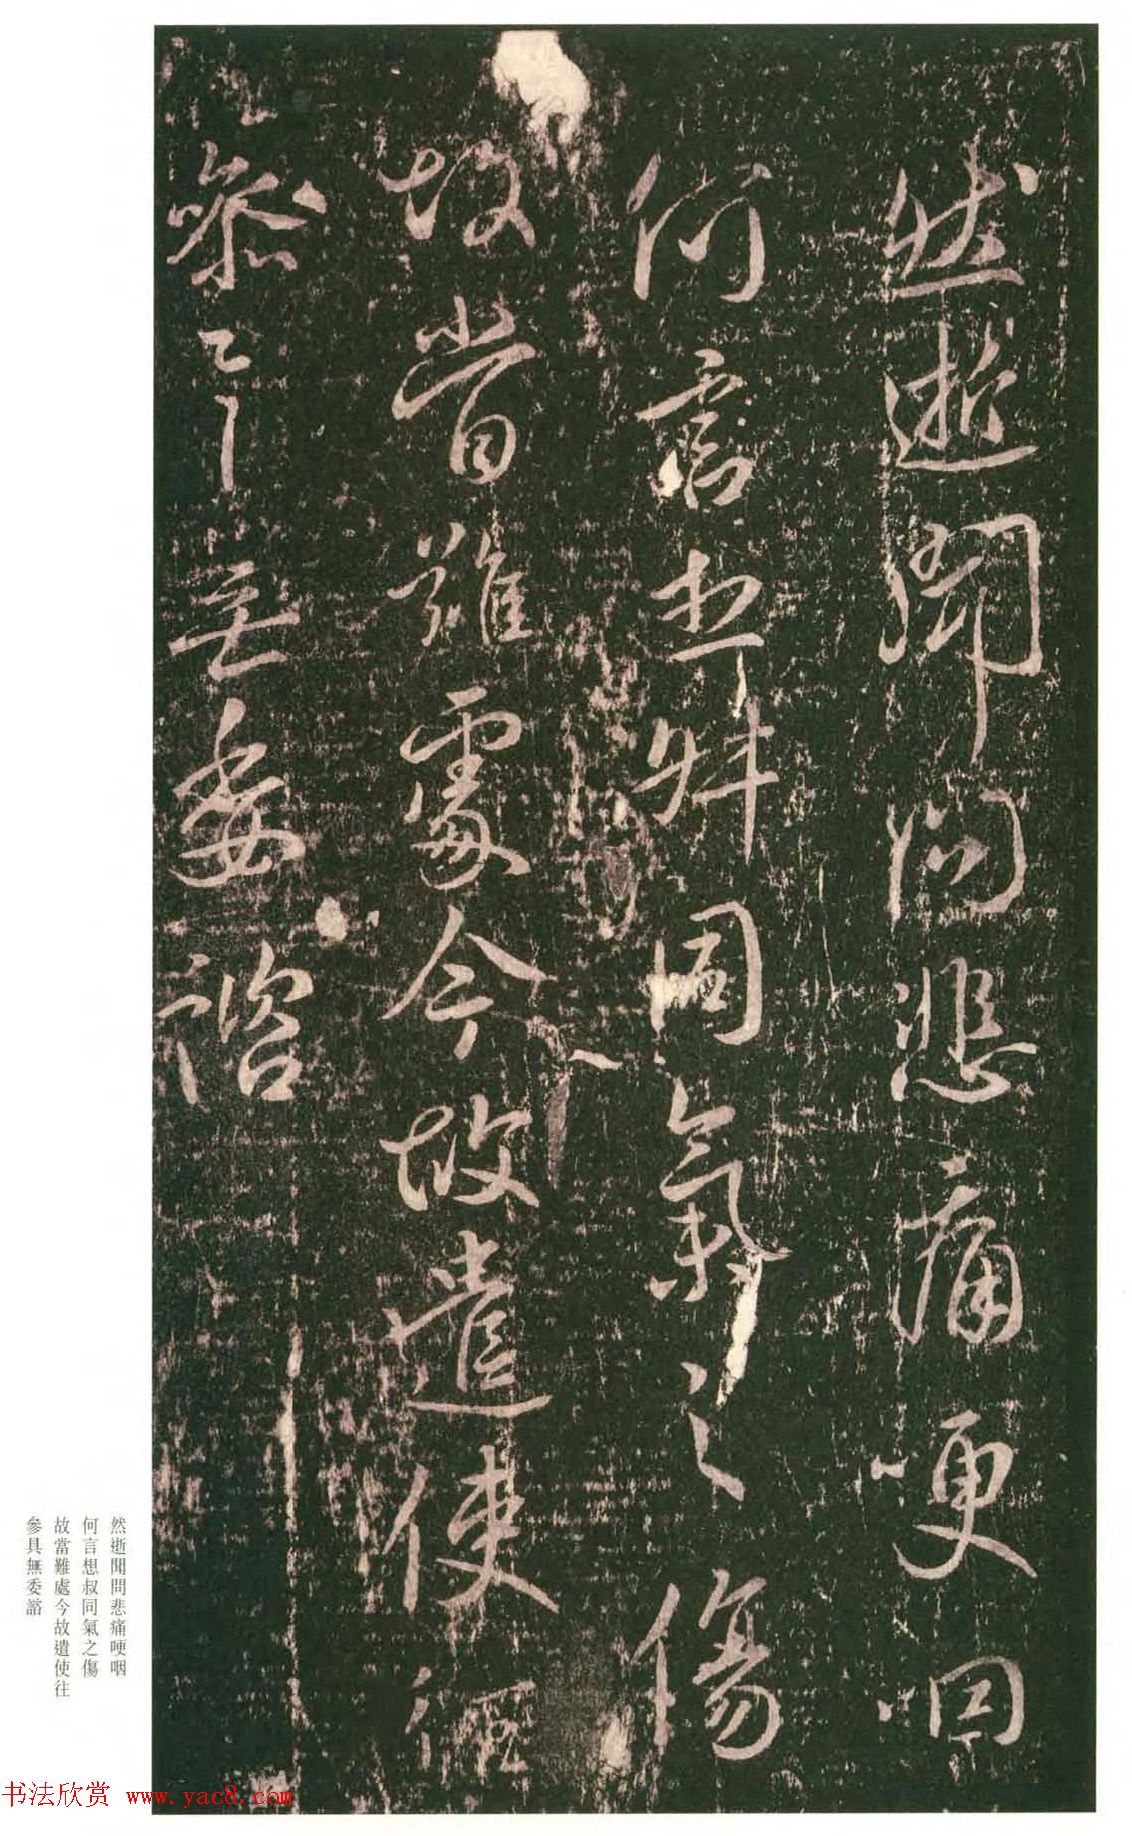 然逝聞問悲痛哽咽
何言想叔同氣之傷
故當難處今故遣使往
參具無委諮
然逝聞問悲痛哽咽
何言想叔同氣之傷
故當難處今故遣使往
參具無委諮
书法欣赏 www.yac8.com